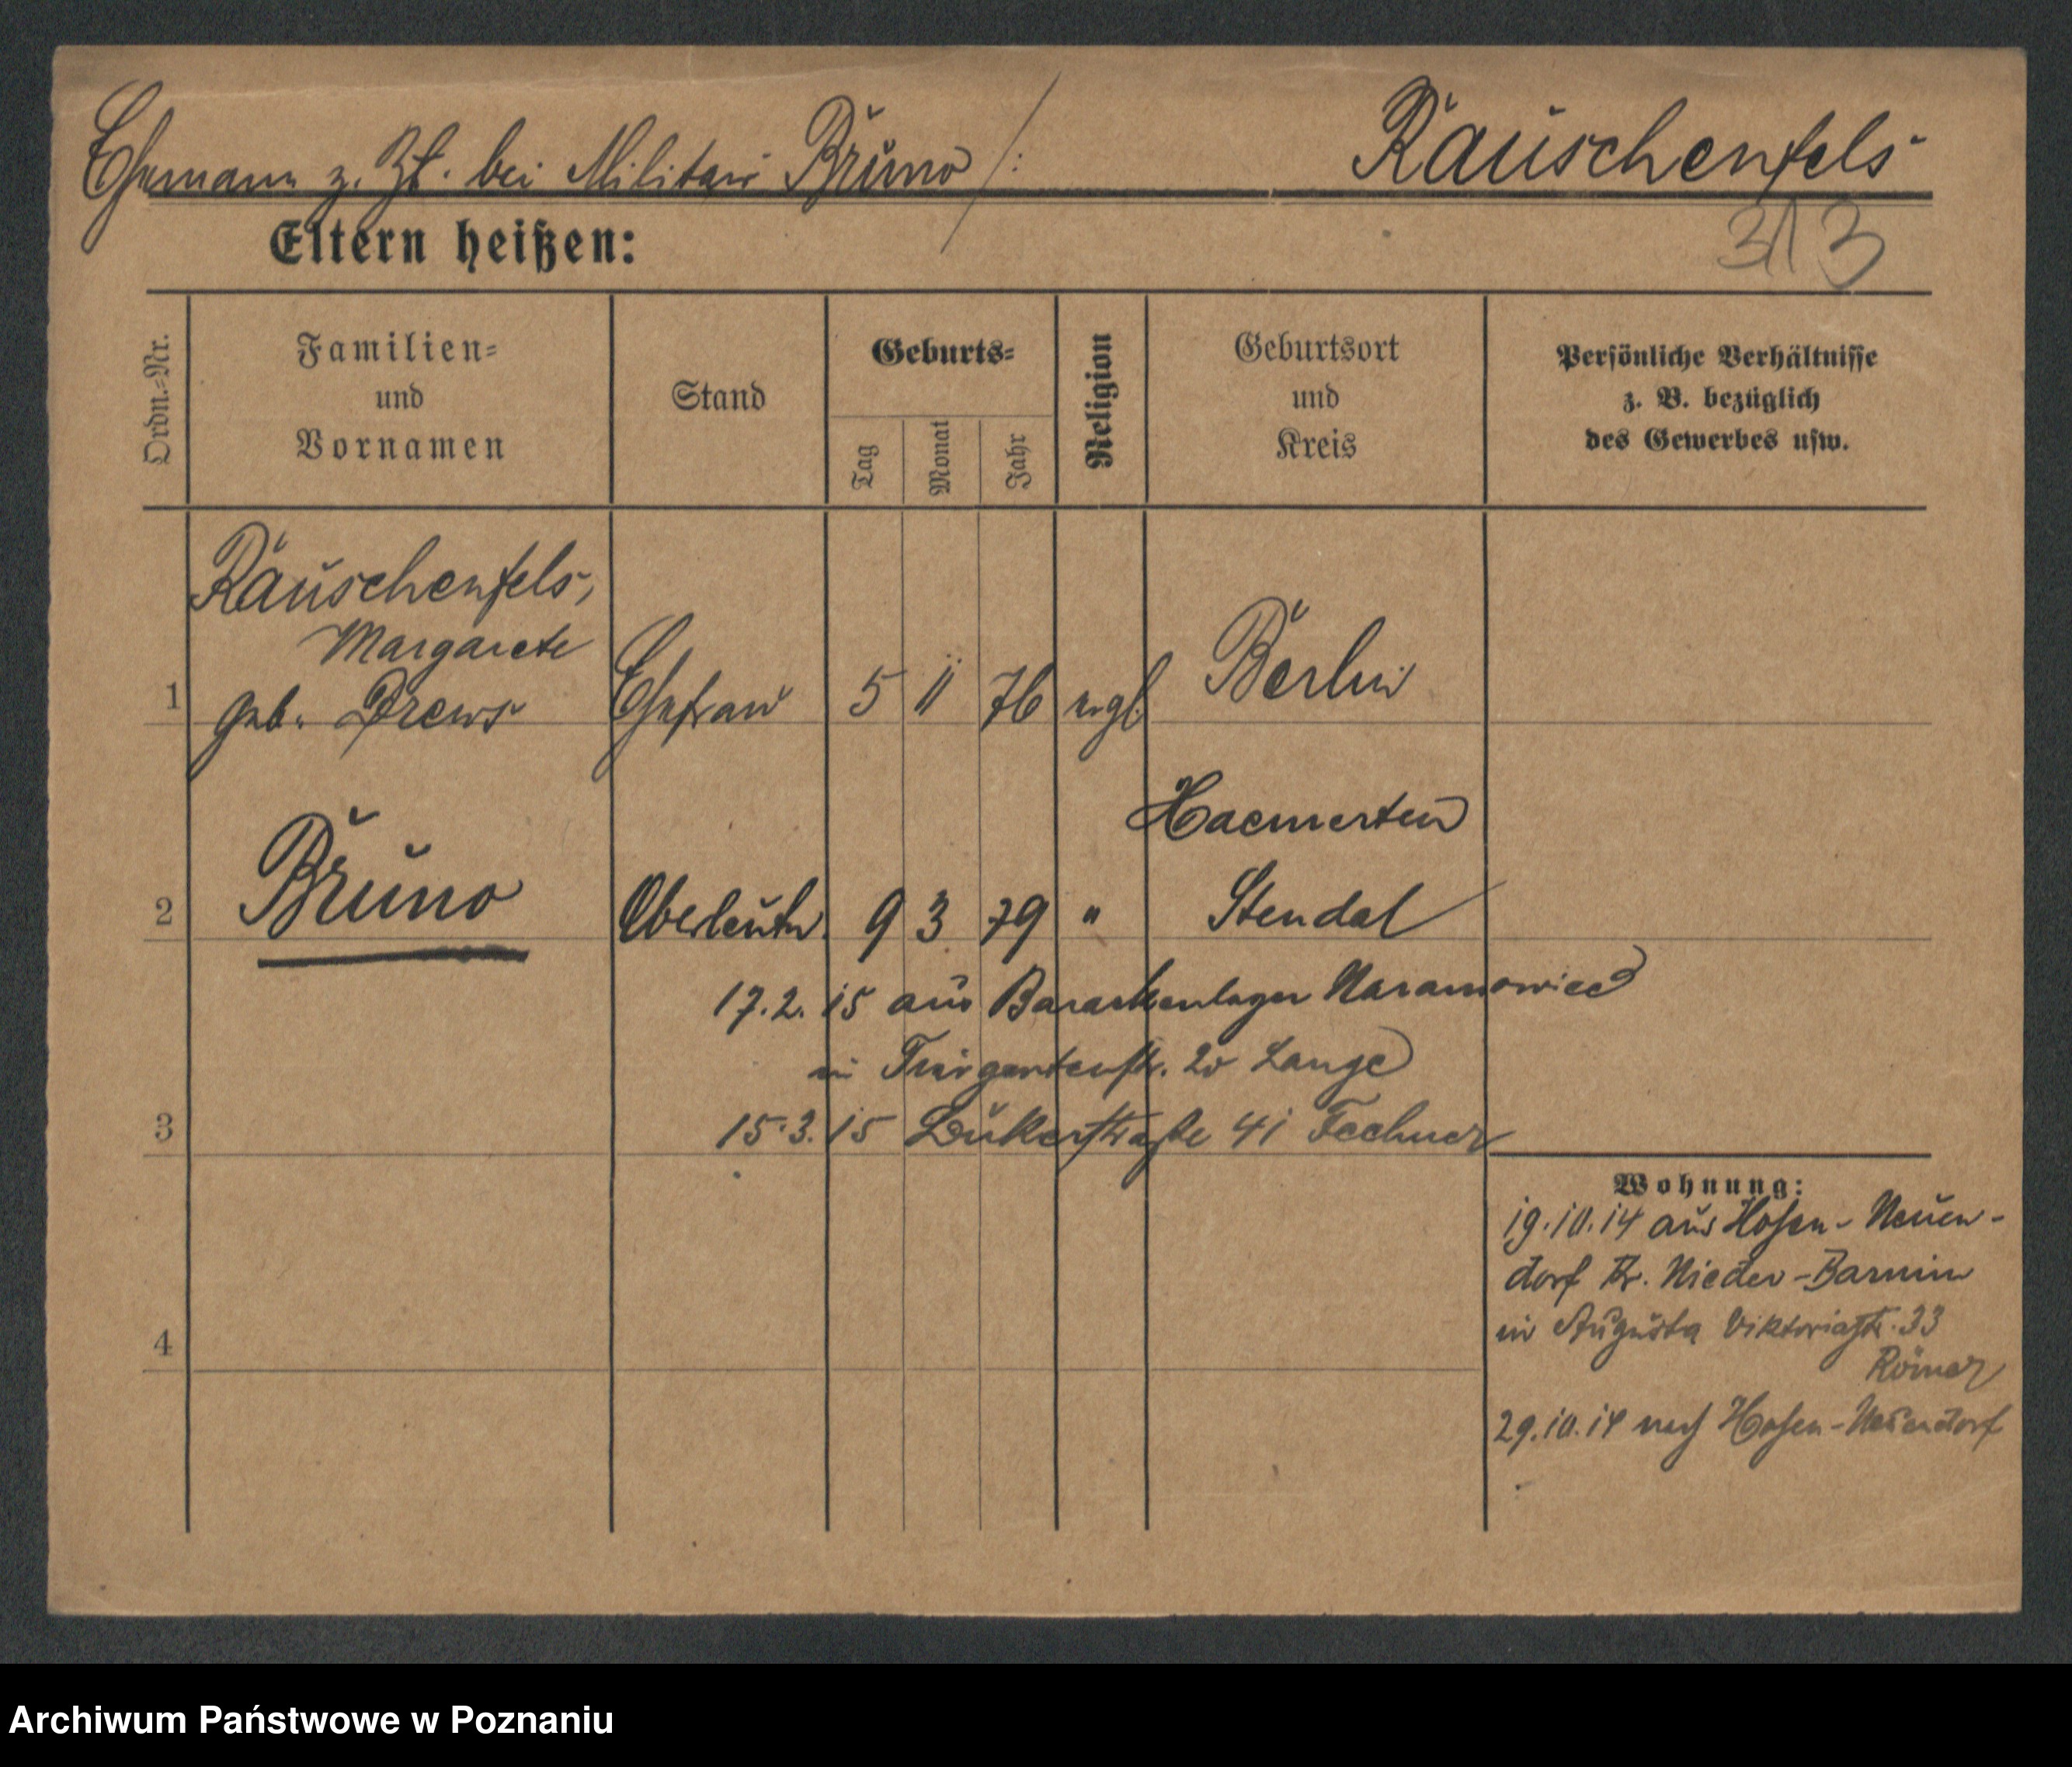 Ehemann z. Zt. bei Militair Bruno /: Rauschenfels
313
Eltern heißen:
Ordn.-Nr.
Familien-
und
Vornamen
Stand
Geburts-
Tag
Monat
Jahr
Religion
Geburtsort
und
Kreis
Persönliche Verhältnisse
z. B. bezüglich
des Gewerbes usw.
Rauschenfels,
Margarete
1 geb. Drews Ehefrau 5 11 76 evgl Berlin
Haemerten
2 Bruno Oberleutn. 9 3 79 " Stendal
17.2.15 aus Barackenlager Naramowice
in Tiergartenstr. 20 Lange
3 15.3.15 straße 41 Fechner
Wohnung:
19.10.14 aus Hohen-Neuen-
dorf Kr. Nieder-Barnim
in Augusta Viktoriastr. 33
Römer
4
29.10.14 nach Hohen-Neuendorf
Archiwum Państwowe w Poznaniu